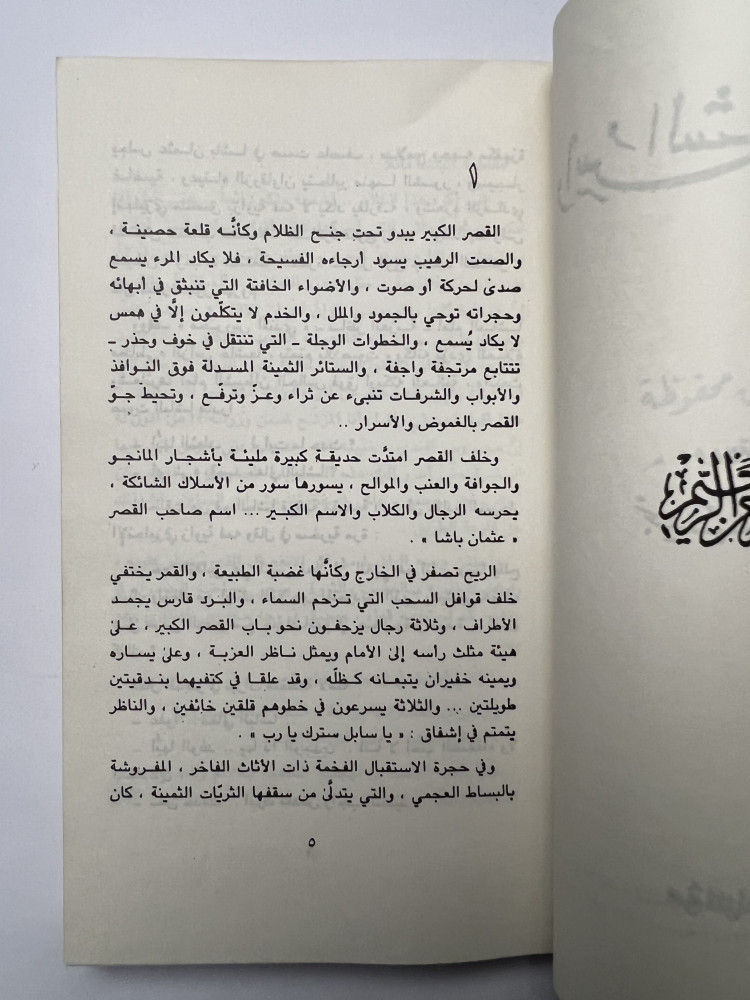 ١
القصر الكبير يبدو تحت جنح الظلام وكأنَّه قلعة حصينة ،
والصمت الرهيب يسود أرجاءه الفسيحة ، فلا يكاد المرء يسمع
صدىٰ لحركة أو صوت ، والأضواء الخافتة التي تنبثق في أبهائه
وحجراته توحي بالجمود والملل ، والخدم لا يتكلّمون إلَّا في همس
لا يكاد يُسمع ، والخطوات الوجلة ـ التي تنتقل في خوف وحذر ـ
تتتابع مرتجفة واجفة ، والستائر الثمينة المسدلة فوق النوافذ
والأبواب والشرفات تنبىء عن ثراء وعزّ وترفّع ، وتحيط جوَّ
القصر بالغموض والأسرار ..
وخلف القصر امتدَّت حديقة كبيرة مليئة بأشجار المانجو
والجوافة والعنب والموالح ، يسورها سور من الأسلاك الشائكة ،
يحرسه الرجال والكلاب والاسم الكبير ... اسم صاحب القصر
« عثمان باشا » .
الريح تصفر في الخارج وكأنَّها غضبة الطبيعة ، والقمر يختفي
خلف قوافل السحب التي تزحم السماء ، والبرد قارس يجمد
الأطراف ، وثلاثة رجال يزحفون نحو باب القصر الكبير ، علىٰ
هيئة مثلث رأسه إلىٰ الأمام ويمثل ناظر العزبة ، وعلىٰ يساره
ويمينه خفيران يتبعانه كظلّه ، وقد علقا في كتفيهما بندقيتين
طويلتين ... والثلاثة يسرعون في خطوهم قلقين خائفين ، والناظر
يتمتم في إشفاق : « يا سابل سترك يا رب » .
وفي حجرة الاستقبال الفخمة ذات الأثاث الفاخر ، المفروشة
بالبساط العجمي ، والتي يتدلَّىٰ من سقفها الثريّات الثمينة ، كان
٥